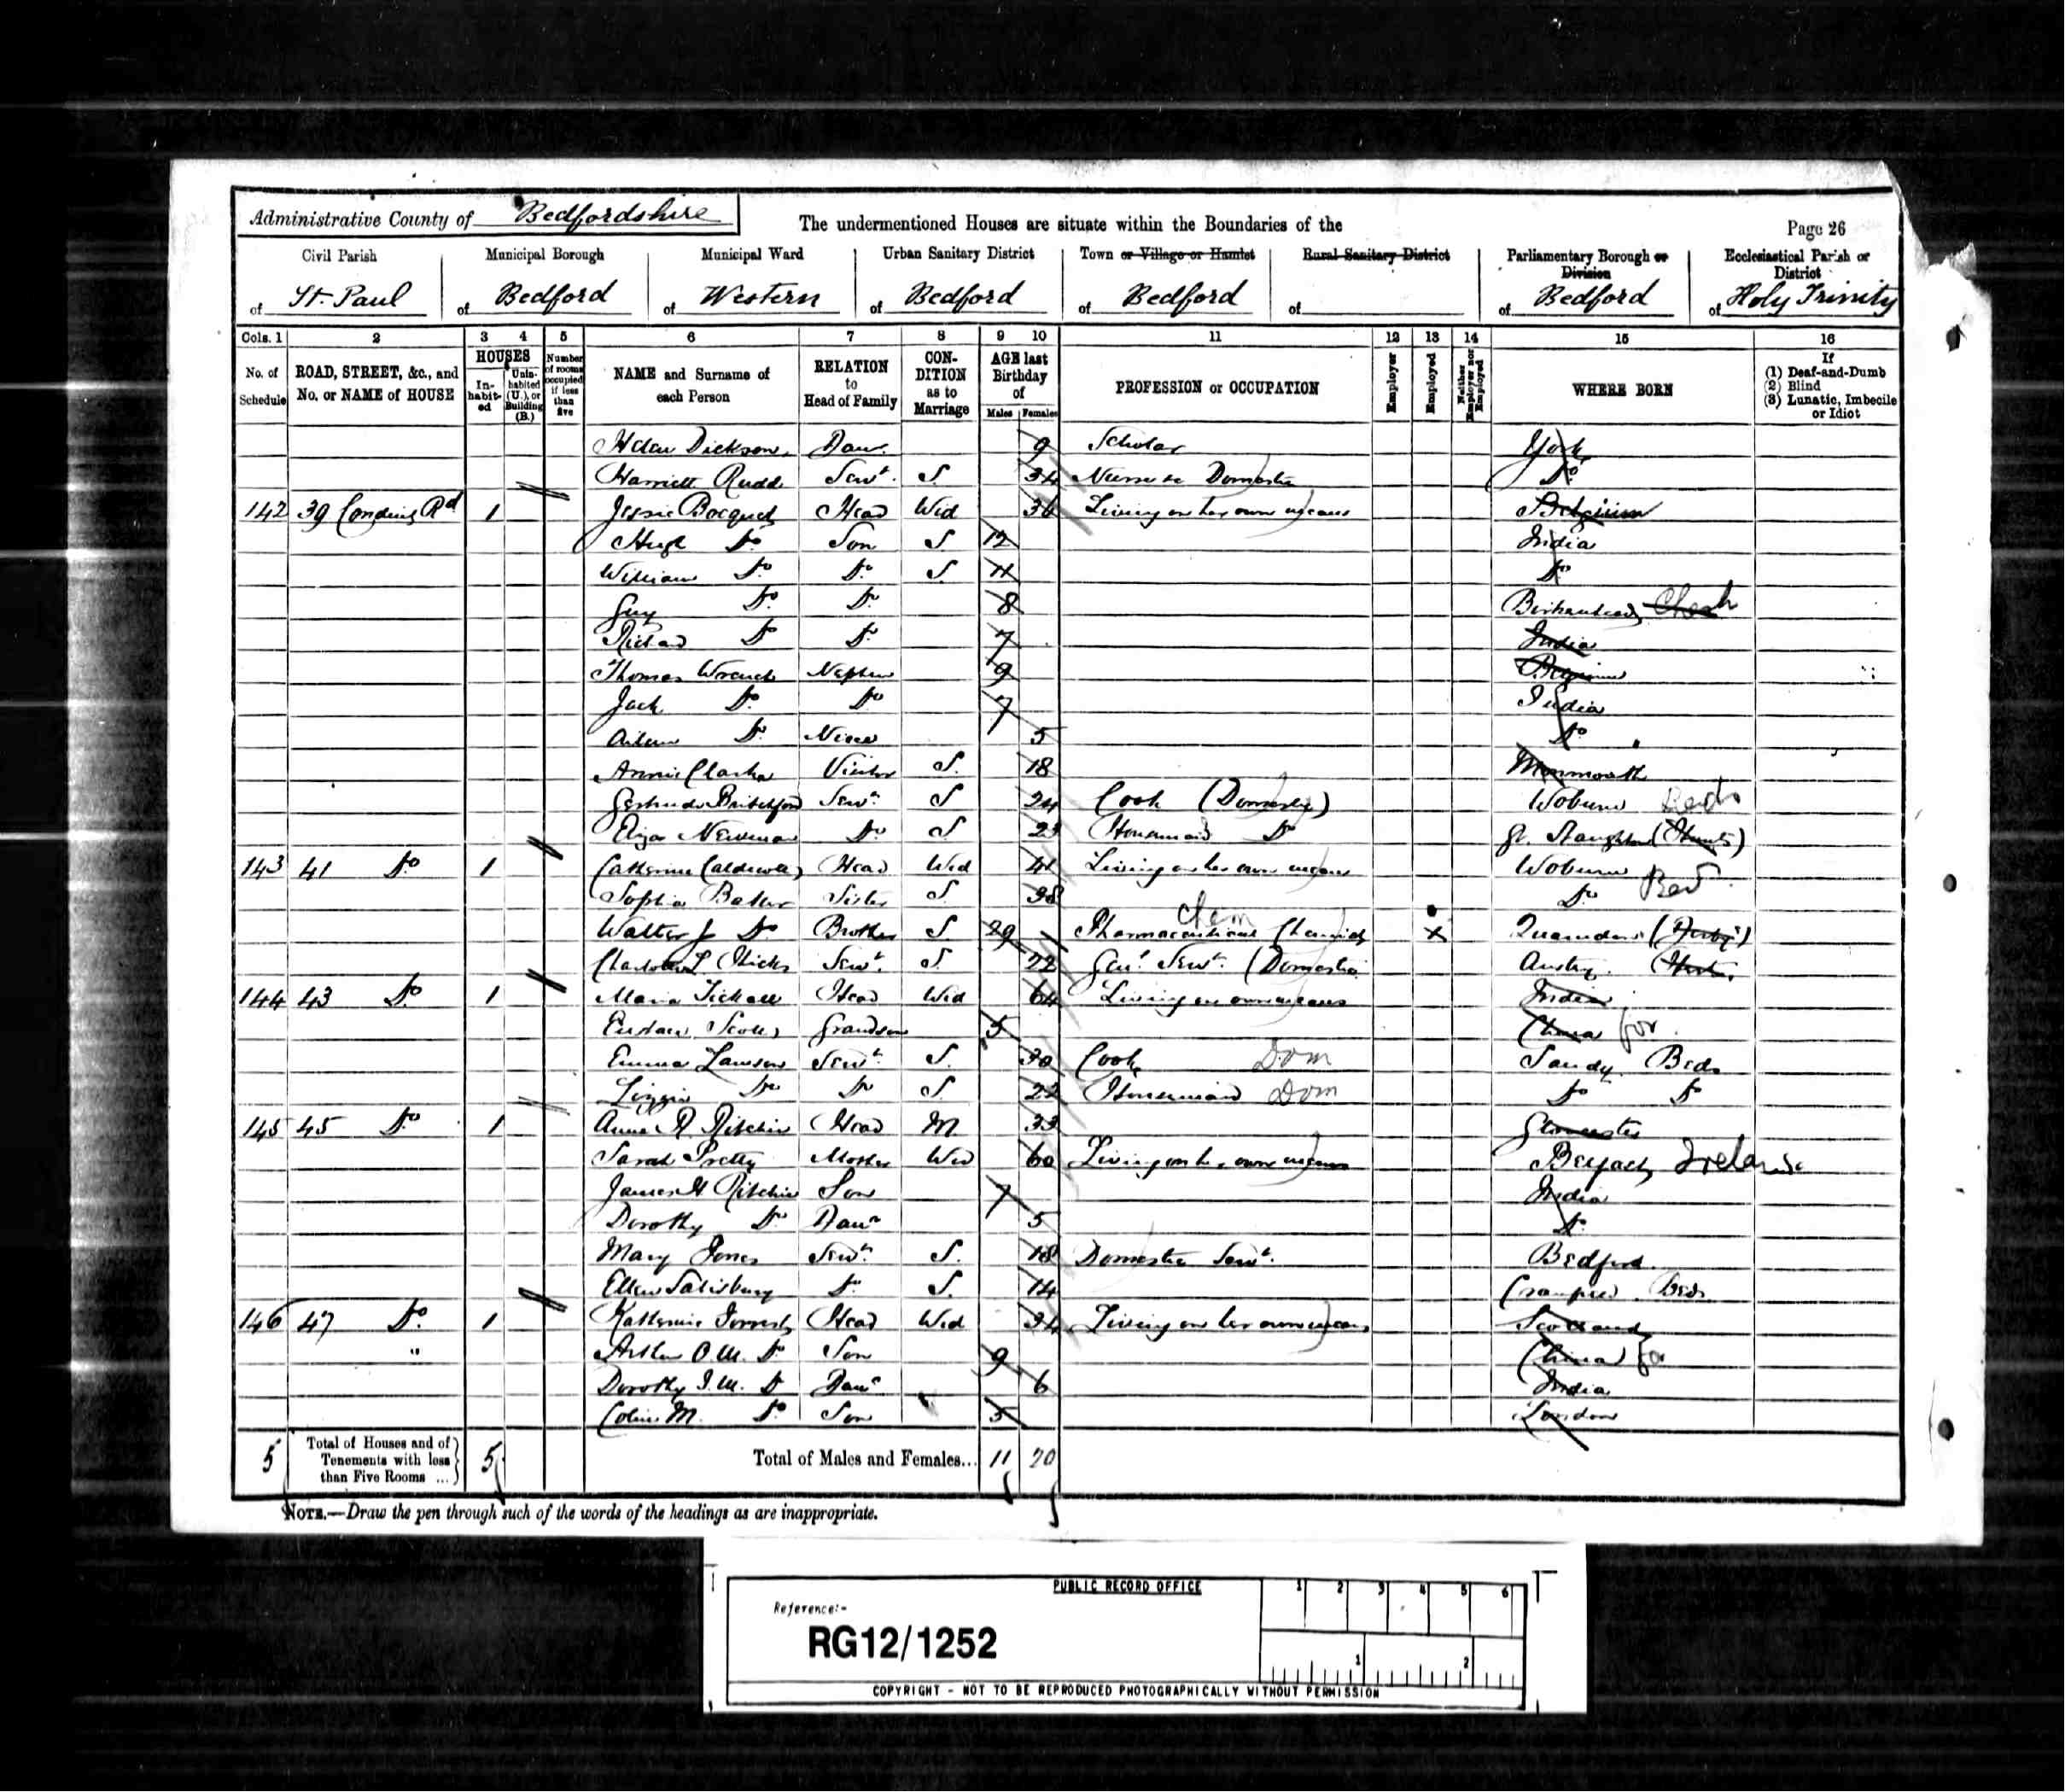 Administrative County of Bedfordshire
The undermentioned Houses are situate within the Boundaries of the
Page 26
Civil Parish of St. Paul
Municipal Borough of Bedford
Municipal Ward of Western
Urban Sanitary District of Bedford
Town or Village or Hamlet of Bedford
Rural Sanitary District of
Parliamentary Borough or Division of Bedford
Ecclesiastical Parish or District of Holy Trinity
Cols. 1 2 3 4 5 6 7 8 9 10 11 12 13 14 15 16
No. of Schedule
ROAD, STREET, &c., and No. or NAME of HOUSE
HOUSES
In-habit-ed
Unin-habited (U.), or Building (B.)
Number of rooms occupied if less than five
NAME and Surname of each Person
RELATION to Head of Family
CON-DITION as to Marriage
AGE last Birthday of
Males Females
PROFESSION or OCCUPATION
Employer
Employed
Neither Employer nor Employed
WHERE BORN
If
(1) Deaf-and-Dumb
(2) Blind
(3) Lunatic, Imbecile or Idiot
Dickson Daur. 9 Scholar York
Harriett Rudd Servt. S. 34 Nurse Domestic Do
142 39 Rd 1 Jessie Head Wid 36 Living on her own means Belgium
Hugh Do Son S. 12 India
William Do Do S. 11 Do
Guy Do Do 8
Richard Do Do 7 India
Thomas Nephew 9
Jack Do Do 7 India
Do Niece 5 Do
Annie Clarke Visitor S. 18 Monmouth
Gertrude Servt. S 24 Cook (Domestic) Woburn Beds
Eliza Newman Do S Housemaid Do Gt. Staughton (Hunts)
143 41 Do 1 Catherine Caldwell Head Wid 41 Living on her own means Woburn Bed
Sophia Sister S 38 Do
Walter J Do Brother S 29 Pharmaceutical Chemist Chem x
Charlotte L. Hicks Servt. S. 22 Genl. Servt. (Domestic)
144 43 Do 1 Maria Tickell Head Wid 64 Living on own means India
Eustace Scott Grandson 5 China for
Emma Lawson Servt. S. Cook Dom Sandy Beds
Lizzie Do Do S. 22 Housemaid Dom Do Do
145 45 Do 1 Anna R. Ritchie Head M. 33 Gloucester
Sarah Pretty Mother Wid 60 Living on her own means Belfast, Ireland
James H Ritchie Son 7 India
Dorothy Do Daur 5 Do
Mary Jones Servt. S. 18 Domestic Servt. Bedford
Ellen Salisbury Do S. 14 Beds
146 47 Do 1 Katherine Head Wid 34 Living on her own means Scotland
" Arthur O.M. Do Son 9 China for
Dorothy I.M. Do Daur 6 India
Colin M. Do Son 5 London
5 Total of Houses and of Tenements with less than Five Rooms ... 5 Total of Males and Females... 11 20
NOTE.—Draw the pen through such of the words of the headings as are inappropriate.
PUBLIC RECORD OFFICE
1 2 3 4 5 6
Reference:-
RG12/1252
1 2
COPYRIGHT - NOT TO BE REPRODUCED PHOTOGRAPHICALLY WITHOUT PERMISSION